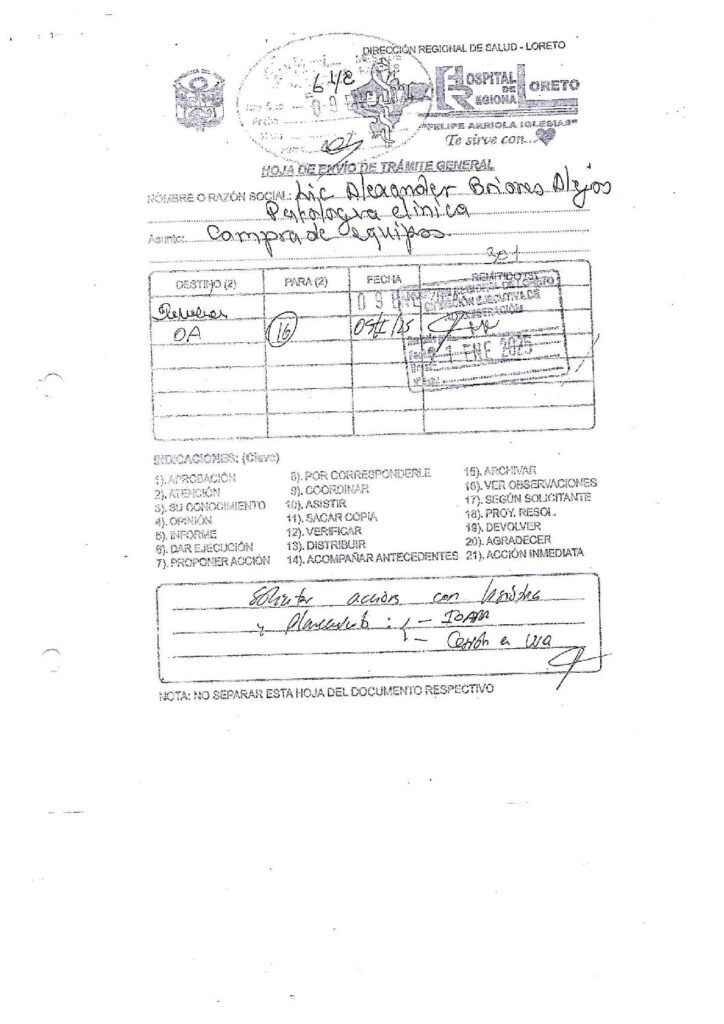 DIRECCIÓN REGIONAL DE SALUD - LORETO
648
HOSPITAL
DE
REGIONAL
LORETO
"FELIPE ARRIOLA IGLESIAS"
Te sirve con...
HOJA DE ENVÍO DE TRÁMITE GENERAL
NOMBRE O RAZÓN SOCIAL: Lic Alexander Briones Alejos
Patología clínica
Asunto: Compra de equipos.
301
DESTINO (2) PARA (2) FECHA REMITIDO (3)
OA 16 09/I/25
21 ENE 2025
INDICACIONES: (Clave)
1). APROBACIÓN 8). POR CORRESPONDERLE 15). ARCHIVAR
2). ATENCIÓN 9). COORDINAR 16). VER OBSERVACIONES
3). SU CONOCIMIENTO 10). ASISTIR 17). SEGÚN SOLICITANTE
4). OPINIÓN 11). SACAR COPIA 18). PROY. RESOL.
5). INFORME 12). VERIFICAR 19). DEVOLVER
6). DAR EJECUCIÓN 13). DISTRIBUIR 20). AGRADECER
7). PROPONER ACCIÓN 14). ACOMPAÑAR ANTECEDENTES 21). ACCIÓN INMEDIATA
Solicitar acciones con logística
y Planeamiento : - IOARR
- Cesión en uso
NOTA: NO SEPARAR ESTA HOJA DEL DOCUMENTO RESPECTIVO